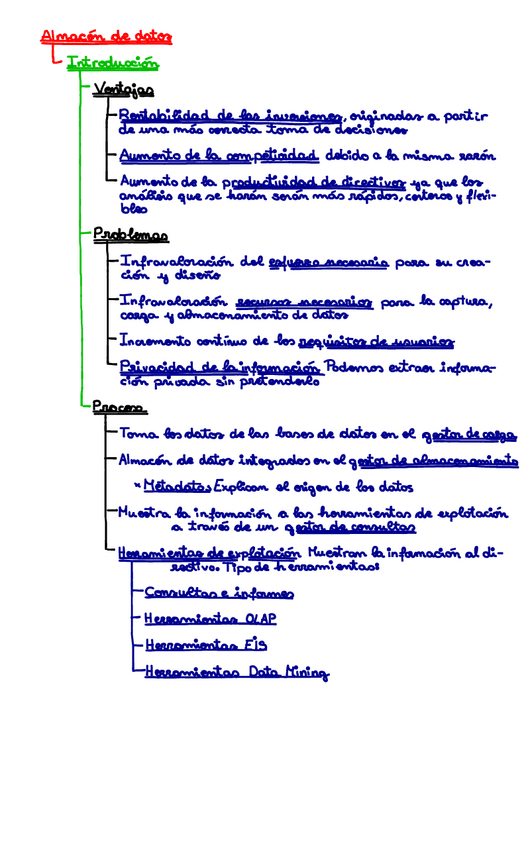 Almacén de datos
Introducción
Ventajas
Rentabilidad de las inversiones, originadas a partir
de una más correcta toma de decisiones
Aumento de la competividad debido a la misma razón
Aumento de la productividad de directivos ya que los
análisis que se harán serán más rápidos, certeros y flexi-
bles
Problemas
Infravaloración del esfuerzo necesario para su crea-
ción y diseño
Infravaloración recursos necesarios para la captura,
carga y almacenamiento de datos
Incremento contínuo de los requisitos de usuarios
Privacidad de la información Podemos extraer informa-
ción privada sin pretenderlo
Proceso
Toma los datos de las bases de datos en el gestor de carga
Almacén de datos integrados en el gestor de almacenamiento
* Metadatos Explican el origen de los datos
Muestra la información a las herramientas de explotación
a través de un gestor de consultas
Herramientas de explotación Muestran la información al di-
rectivo. Tipo de herramientas:
Consultas e informes
Herramientas OLAP
Herramientas EIS
Herramientas Data Mining